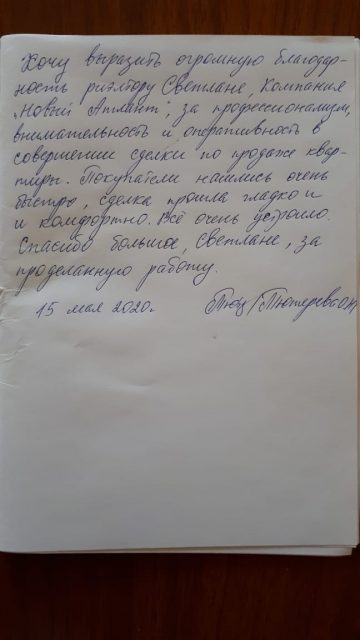 Хочу выразить огромную благодар-
ность риэлтору Светлане, компания
„Новый Атлант", за профессионализм,
внимательность и оперативность в
совершении сделки по продаже квар-
тиры. Покупатели нашлись очень
быстро, сделка прошла гладко и
и комфортно. Всё очень устроило.
Спасибо большое, Светлане, за
проделанную работу.
15 мая 2020г.